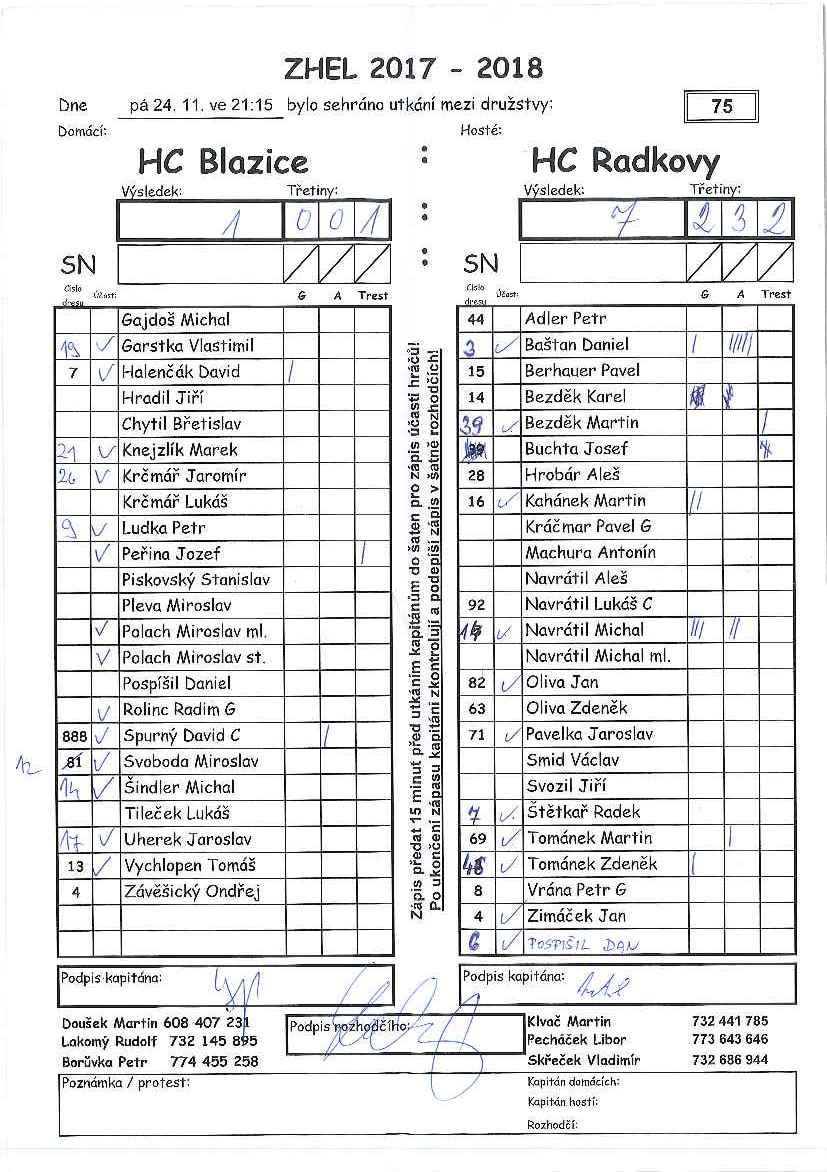 ZHEL 2017 - 2018
Dne pá 24. 11. ve 21:15 bylo sehráno utkání mezi družstvy: 75
Domácí: Hosté:
HC Blazice : HC Radkovy
Výsledek: Třetiny: Výsledek: Třetiny:
1 0 0 1 : 7 2 3 2
SN : SN
Číslo dresu Účast: G A Trest Číslo dresu Účast: G A Trest
Gajdoš Michal
19 ✓ Garstka Vlastimil
7 ✓ Halenčák David |
Hradil Jiří
Chytil Břetislav
21 ✓ Knejzlík Marek
26 ✓ Krčmář Jaromír
Krčmář Lukáš
9 ✓ Ludka Petr
✓ Peřina Jozef |
Piskovský Stanislav
Pleva Miroslav
✓ Polach Miroslav ml.
✓ Polach Miroslav st.
Pospíšil Daniel
✓ Rolinc Radim G
888 ✓ Spurný David C |
12 81 ✓ Svoboda Miroslav
14 ✓ Šindler Michal
Tileček Lukáš
17 ✓ Uherek Jaroslav
13 ✓ Vychlopen Tomáš
4 Závěšický Ondřej
Zápis předat 15 minut před utkáním kapitánům do šaten pro zápis účasti hráčů!
Po ukončení zápasu kapitáni zkontrolují a podepíší zápis v šatně rozhodčích!
44 Adler Petr
3 ✓ Baštan Daniel | |||||
15 Berhauer Pavel
14 Bezděk Karel
39 ✓ Bezděk Martin |
Buchta Josef
28 Hrobár Aleš
16 ✓ Kahánek Martin ||
Kráčmar Pavel G
Machura Antonín
Navrátil Aleš
92 Navrátil Lukáš C
✓ Navrátil Michal ||| ||
Navrátil Michal ml.
82 ✓ Oliva Jan
63 Oliva Zdeněk
71 ✓ Pavelka Jaroslav
Smid Václav
Svozil Jiří
7 ✓ Štětkař Radek
69 ✓ Tománek Martin |
✓ Tománek Zdeněk |
8 Vrána Petr G
4 ✓ Zimáček Jan
6 ✓ POSPIŠIL DAN
Podpis kapitána: Podpis kapitána:
Doušek Martin 608 407 231 Podpis rozhodčího: Klvač Martin 732 441 785
Lakomý Rudolf 732 145 895 Pecháček Libor 773 643 646
Borůvka Petr 774 455 258 Skřeček Vladimír 732 686 944
Poznámka / protest: Kapitán domácích:
Kapitán hostí:
Rozhodčí: